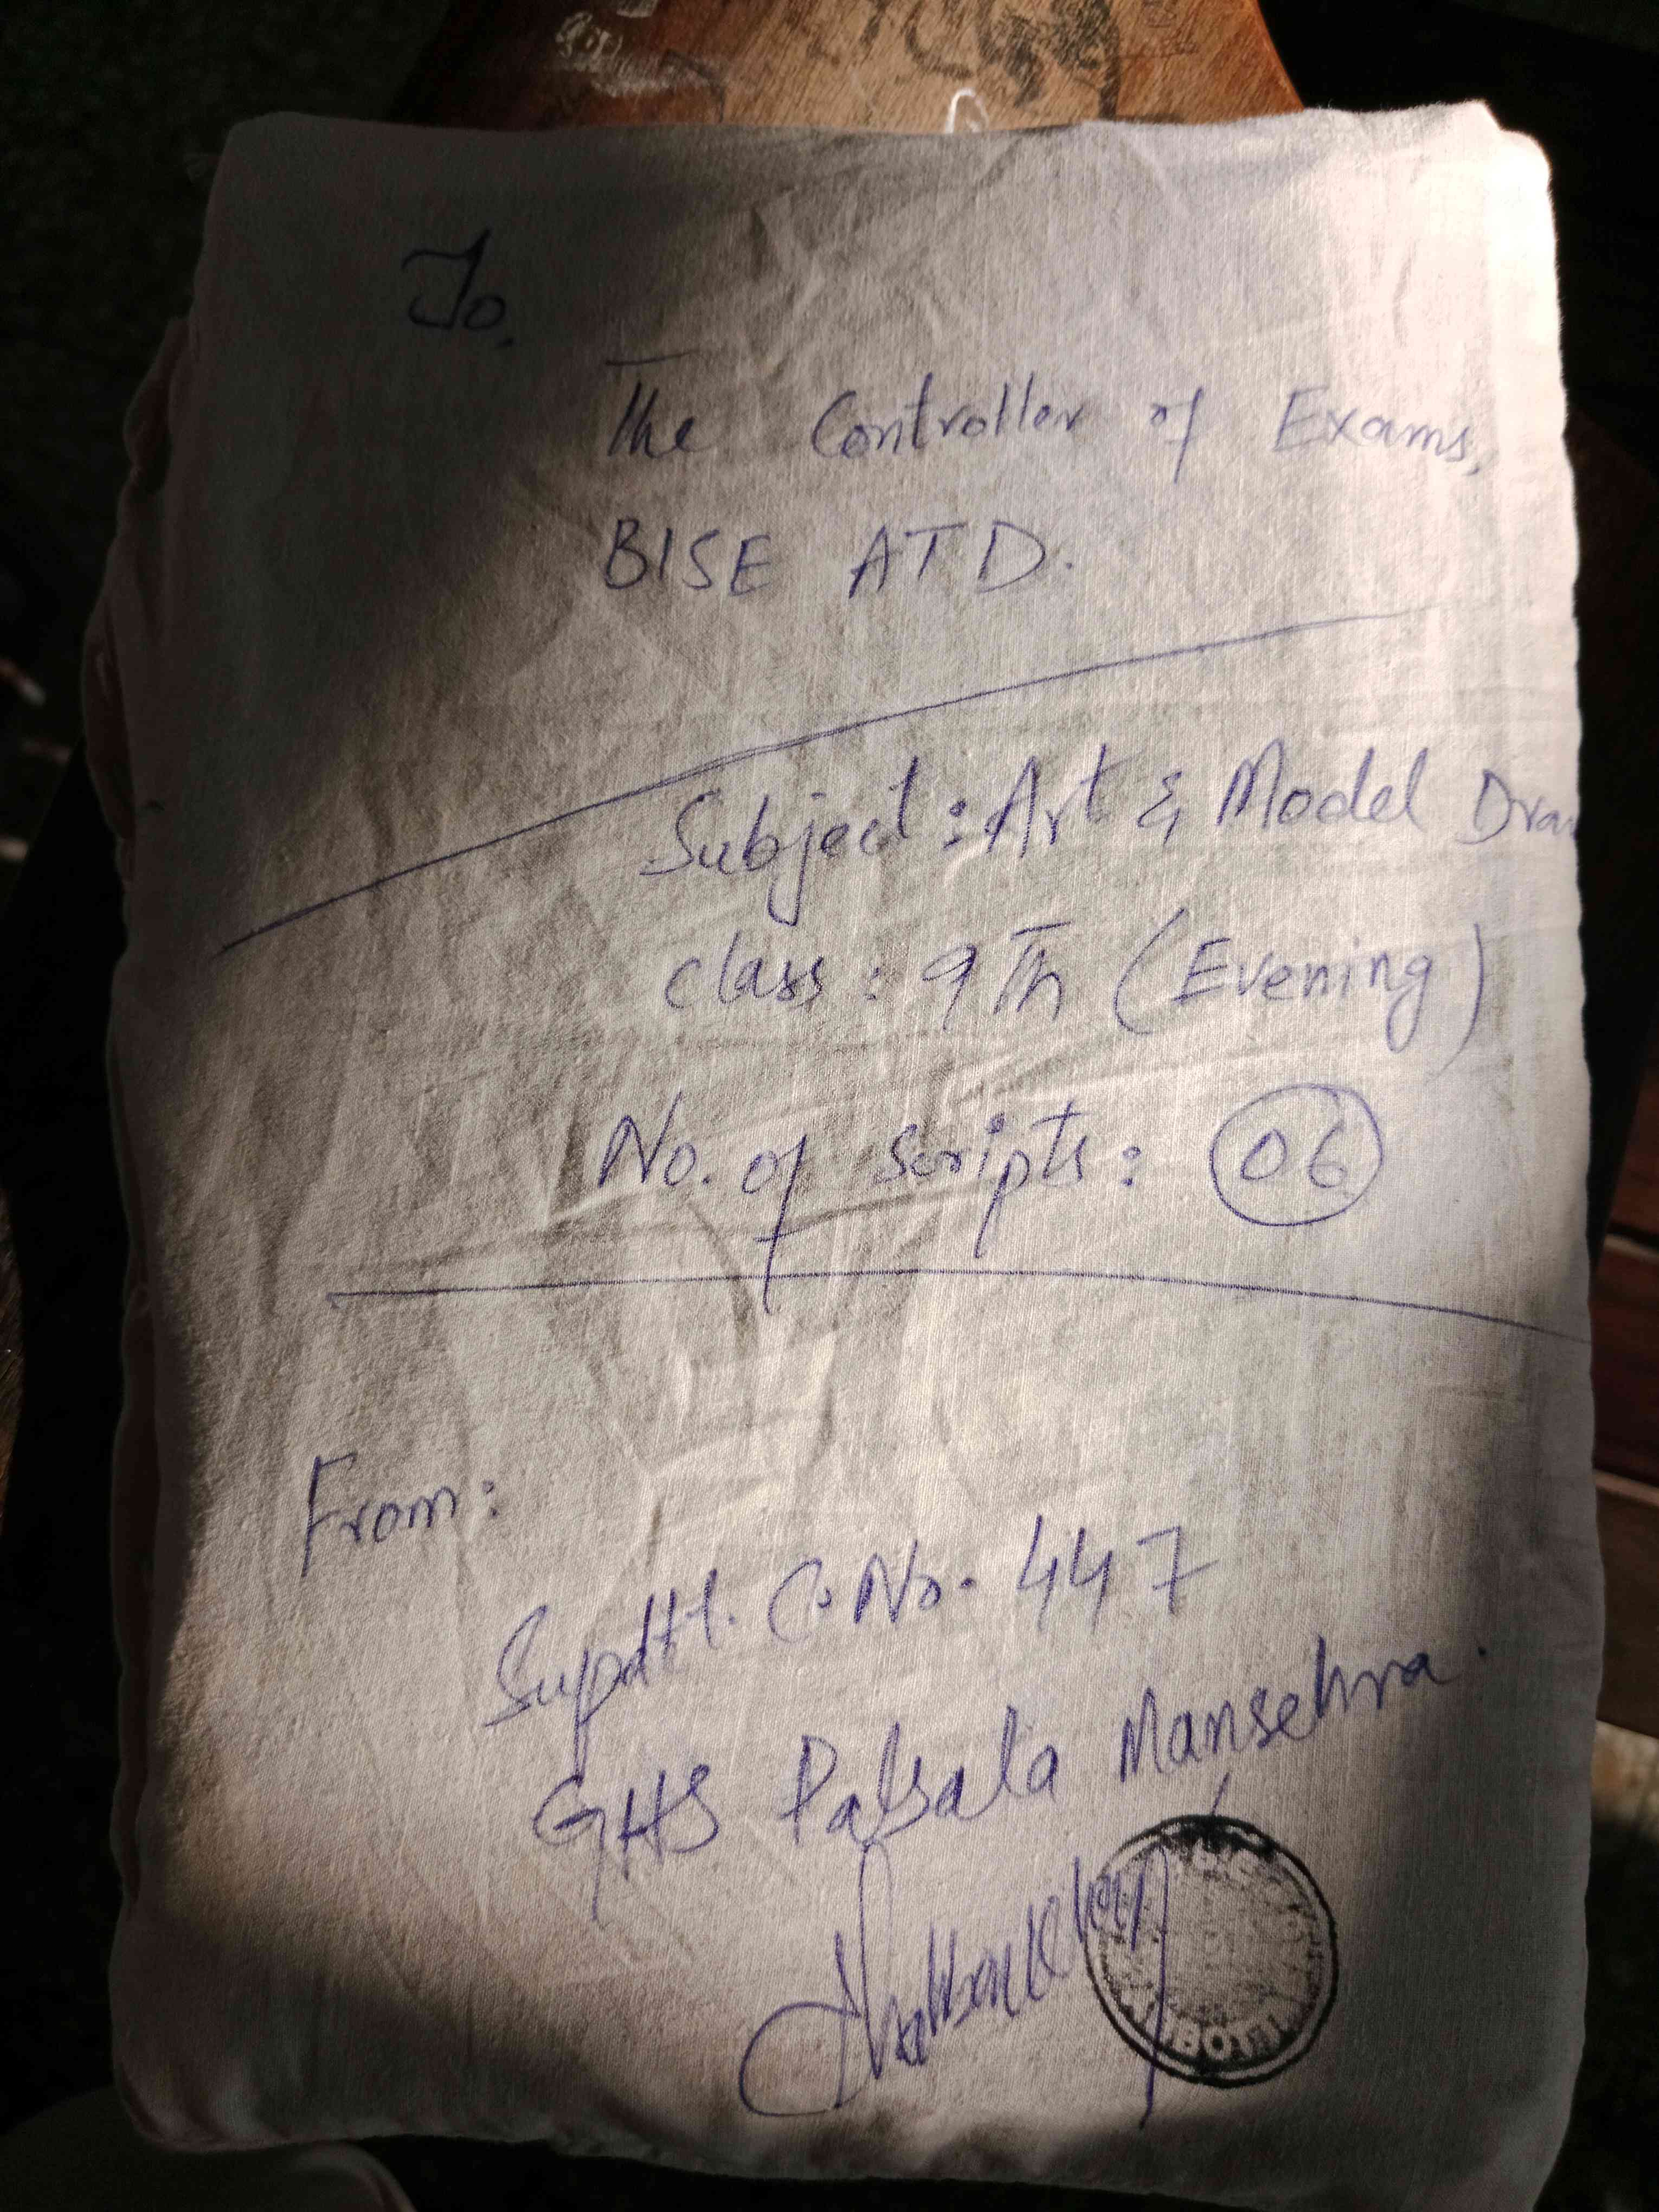 To,
The Controller of Exams,
BISE ATD.
Subject: Art & Model Draw
Class: 9Th (Evening)
No. of scripts: 06
From:
Supdtt. C. No. 447
GHS Mansehra.